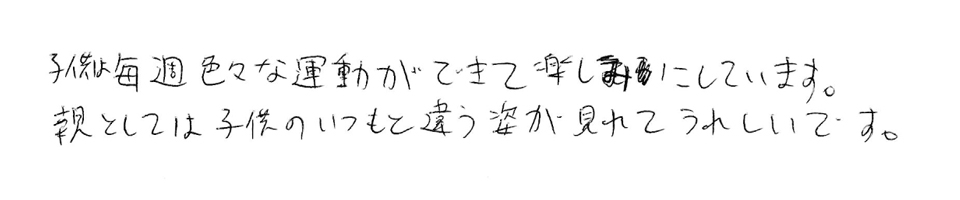 子供は毎週色々な運動ができて楽しみにしています。
親としては子供のいつもと違う姿が見れてうれしいです。